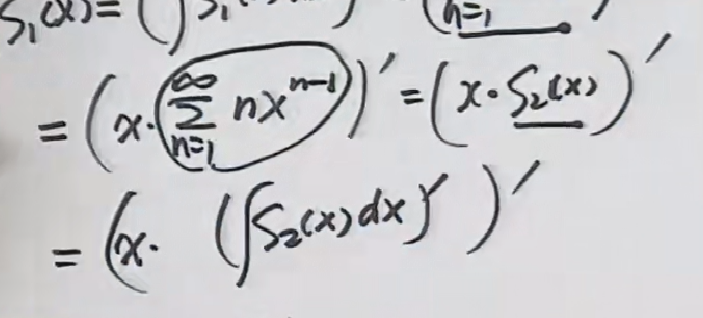 S₁(x)=(∫S₁ n=1 ′
=(x·∑_{n=1}^{∞} nx^{n-1})′=(x·S₂(x))′
=(x· (∫S₂(x)dx)′ )′